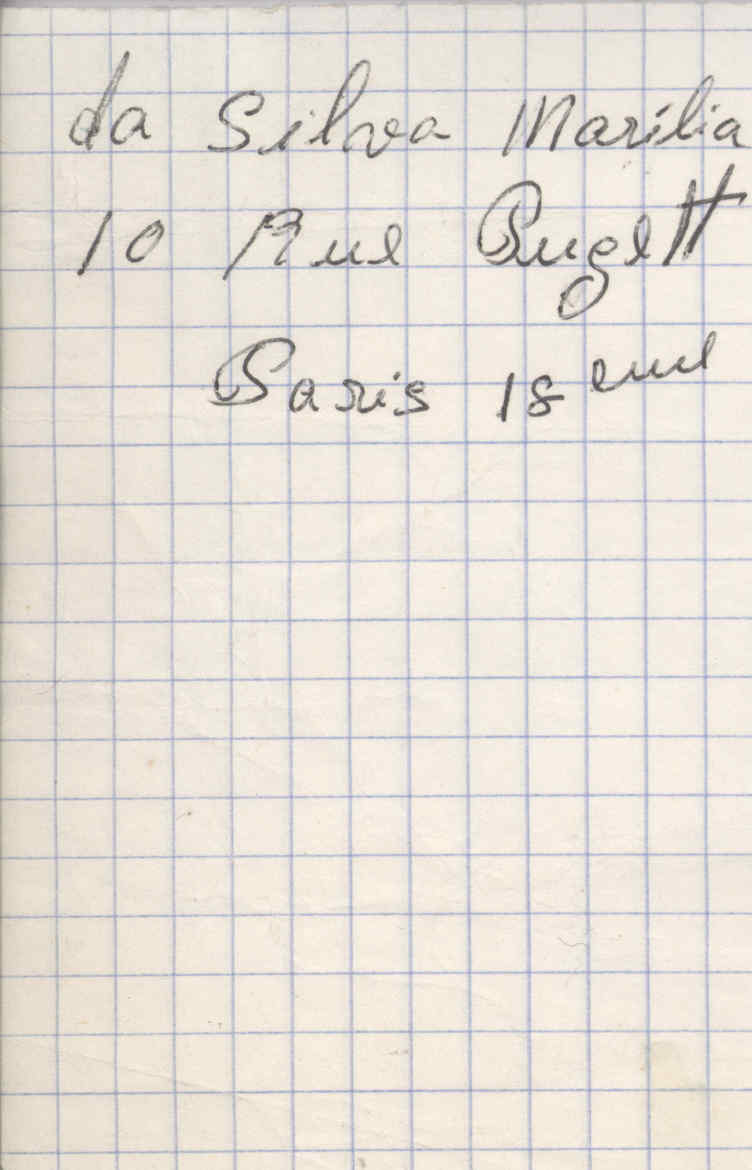 da Silva Marília
10 Rue Pugett
Paris 18 eme